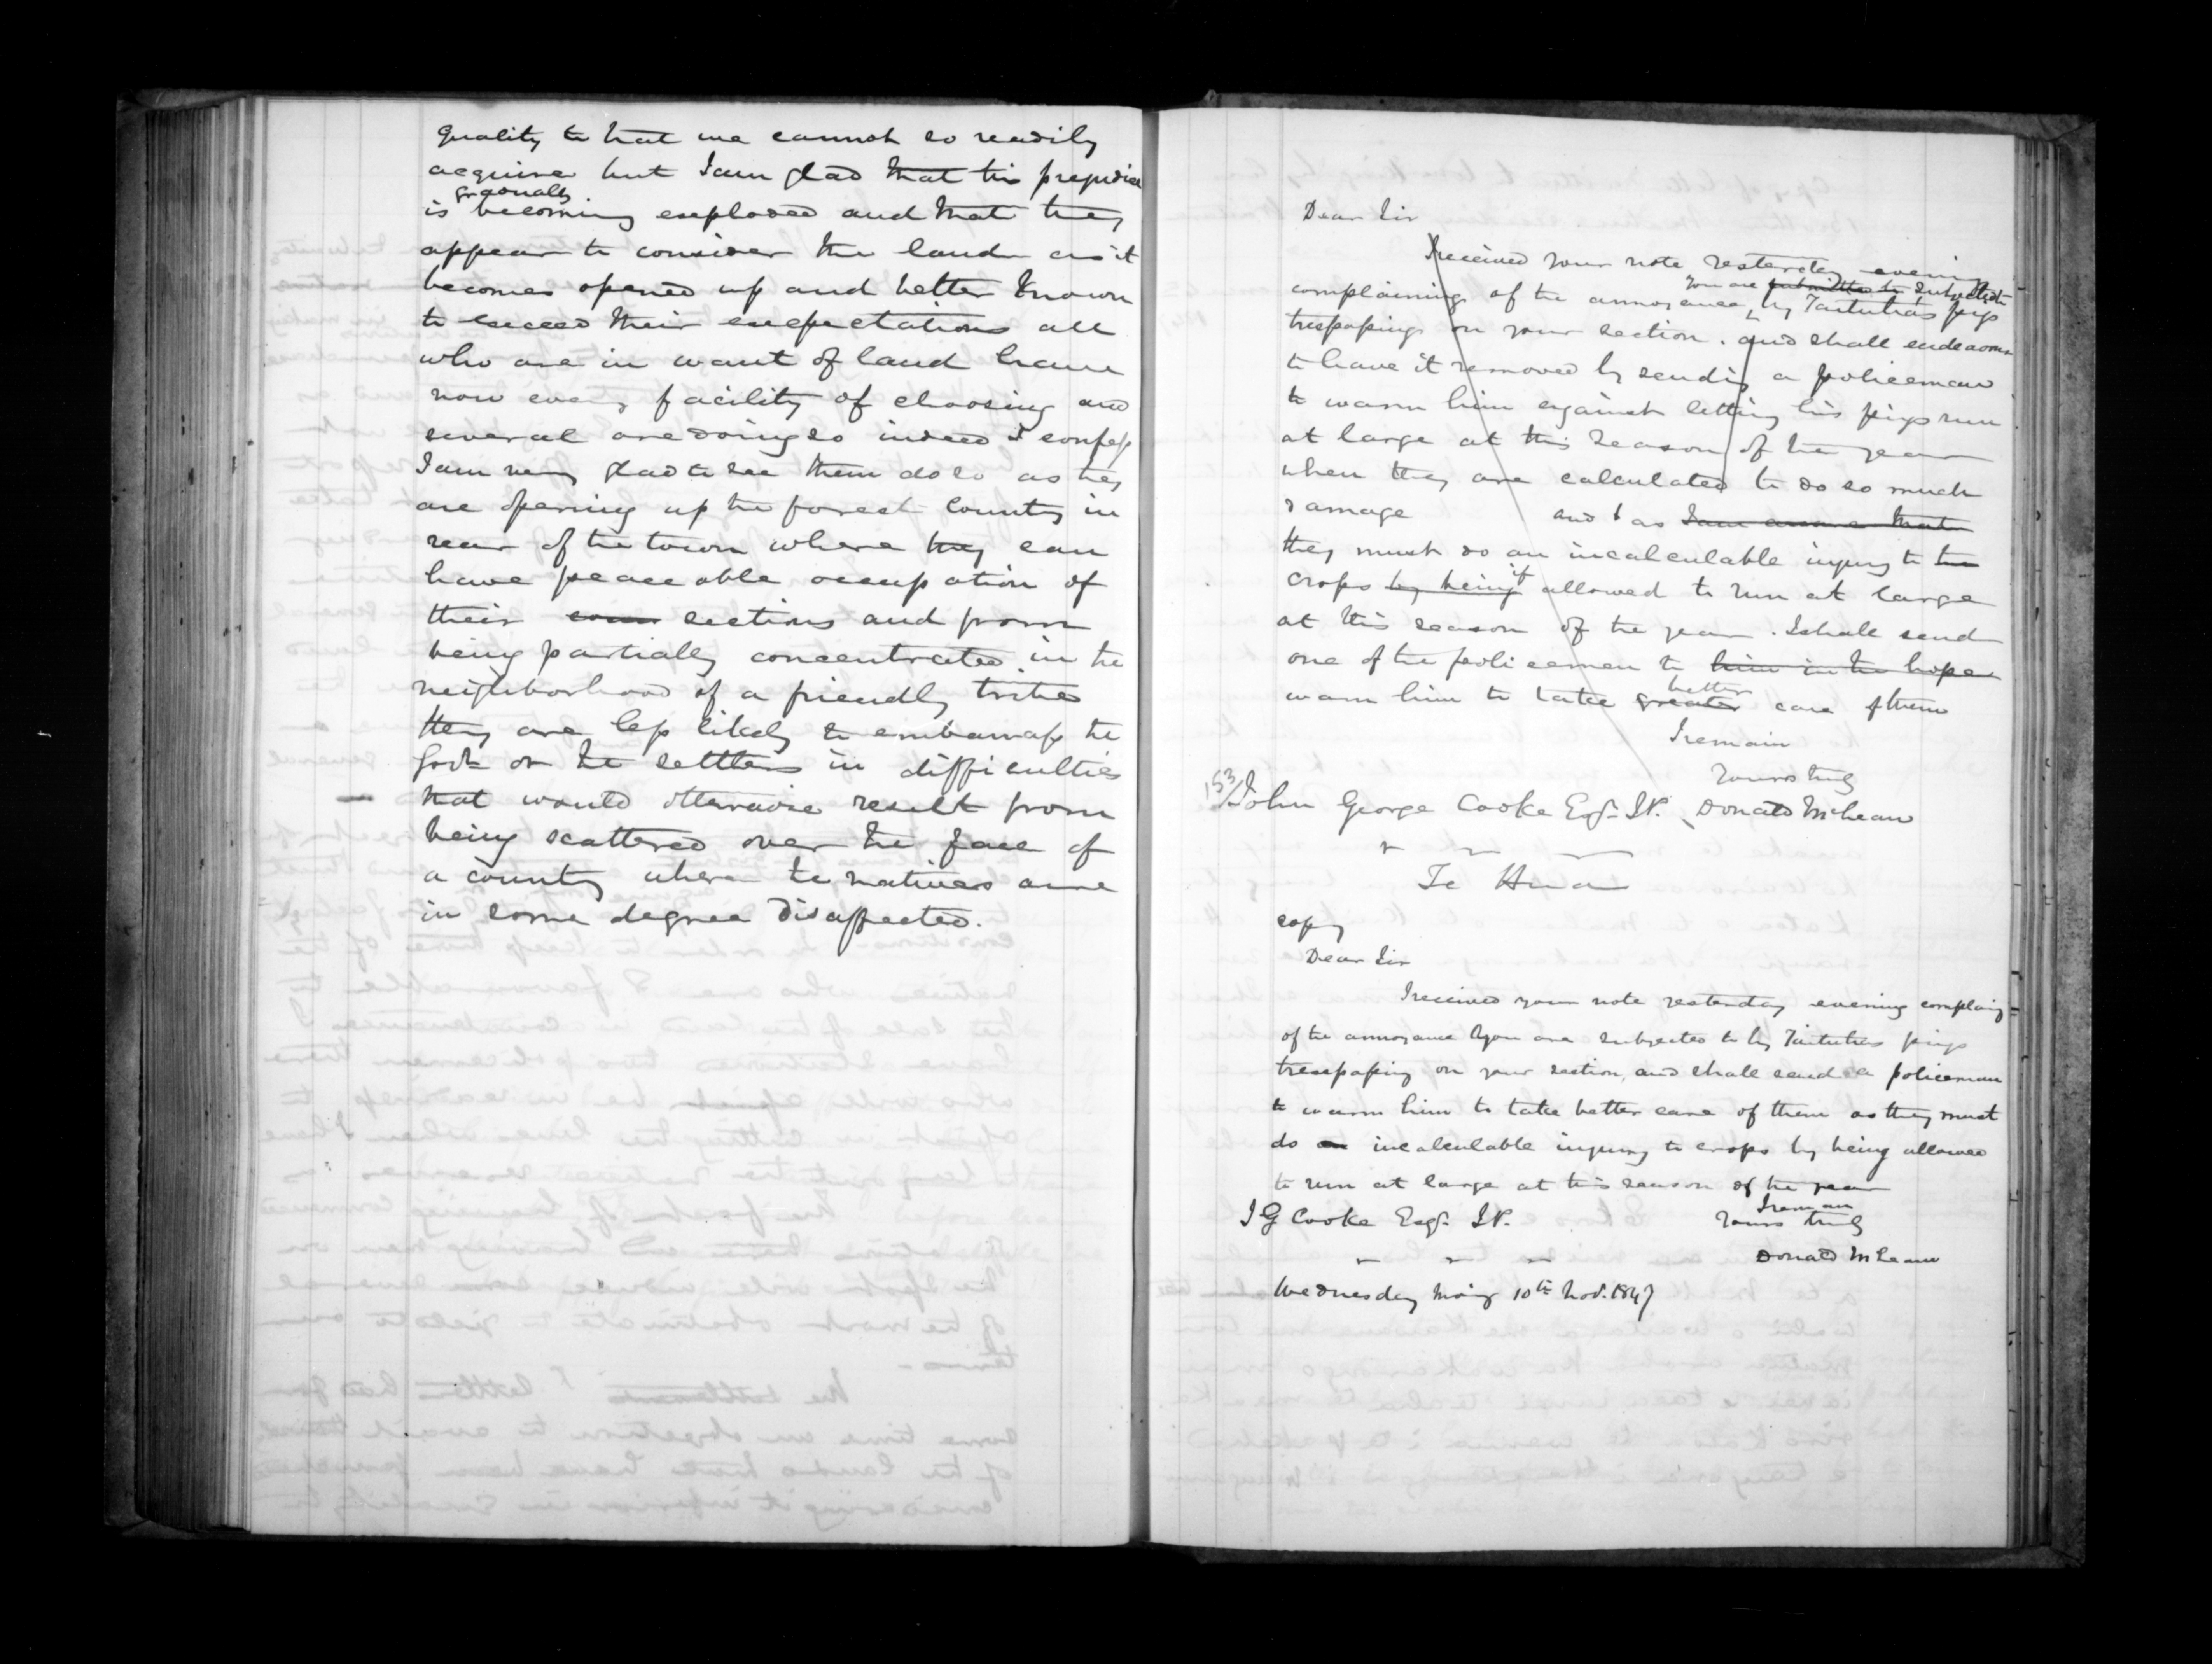 quality to that we cannot so readily
acquire but I am glad that this prejudice
gradually
is becoming exploded and that they
appear to consider the land as it
becomes opened up and better known
to exceed their expectations all
who are in want of land have
now every facility of choosing and
several are doing so indeed I confess
I am very glad to see them do so as they
are opening up the forest country in
rear of the town where they can
have peaceable occupation of
their sections and from
being partially concentrated in the
neighborhood of a friendly tribe
they are less likely to embarrass the
Govt or the settlers in difficulties
that would otherwise result from
being scattered over the face of
a country where the natives are
in some degree disaffected.
Dear Sir
I received your note yesterday evening
you are submitted to subjected
complaining of the annoyance by Taitutus pigs
trespassing on your section. and shall endeavour
to have it removed by sending a policeman
to warn him against letting his pigs run
at large at this season of the year
when they are calculated to do so much
damage and as I am aware that
they must do an incalculable injury to the
crops by being if allowed to run at large
at this season of the year. I shall send
one of the policemen to him in the hope
better
warn him to take greater care of them
I remain
Yours truly
153/ John George Cooke Esqr. J.P. Donald McLean
Te Hua
copy
Dear Sir
I received your note yesterday evening complaing
of the annoyance you are subjected to by Taitutus pigs
tresspassing on your section, and shall send a policeman
to warn him to take better care of them as they must
do an incalculable injury to crops by being allowed
to run at large at this season of the year
I remain
J G Cooke Esqr. J.P. Yours truly
Donald McLean
Wednesday Mo'ing 10th Nov. 1847